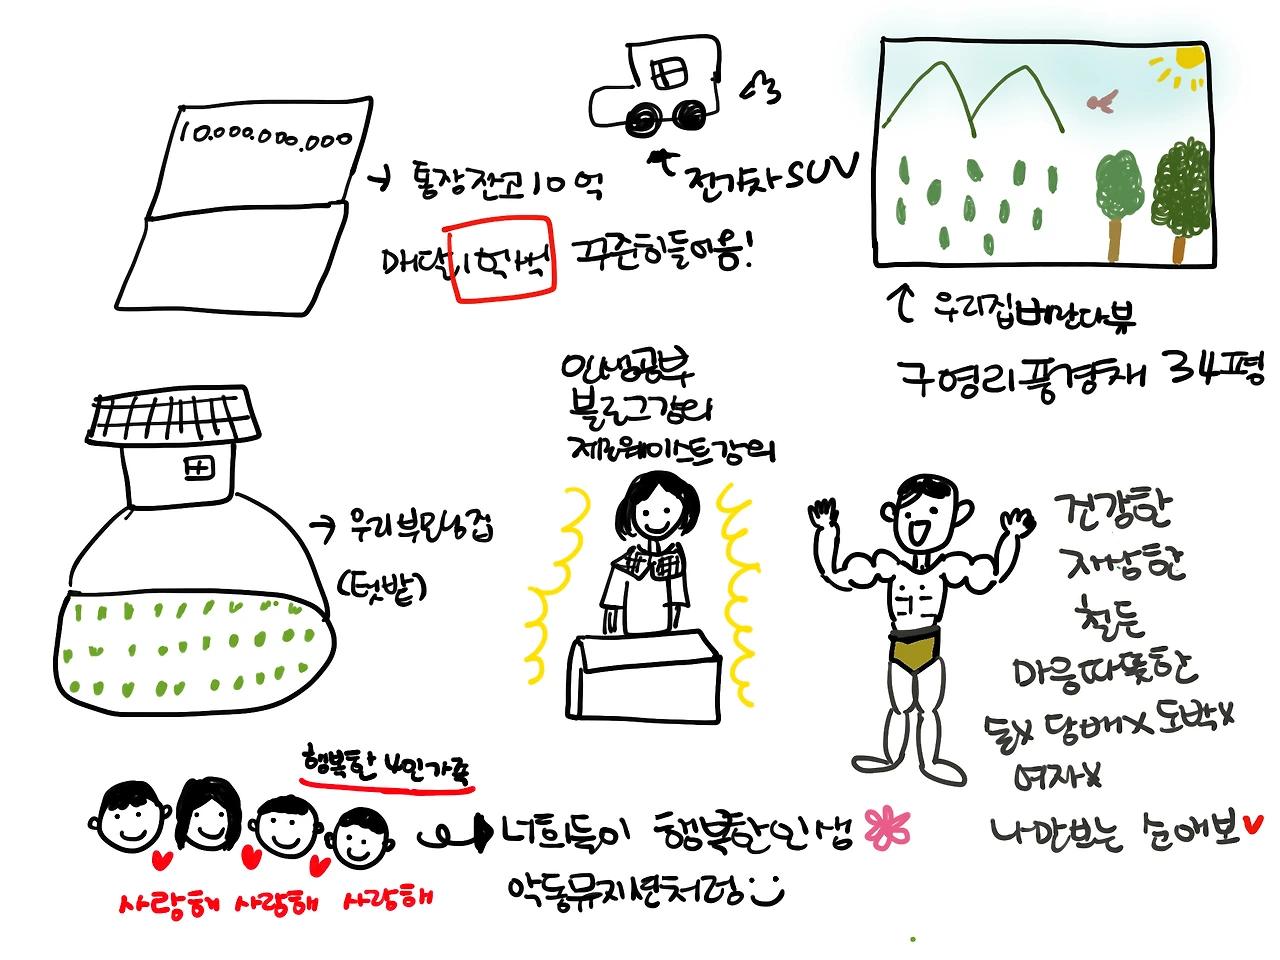 10.000.000.000
→ 통장잔고 10억
매달 1천백 꾸준히들어옴!
전기차 SUV
우리집베란다뷰
구영리풍경채 34평
인생공부
블로그강의
제로웨이스트강의
→ 우리부모님집
(텃밭)
건강한
자상한
철든
마음따뜻한
술x 담배x 도박x
여자x
나만보는 순애보
행복한 4인가족
사랑해 사랑해 사랑해
너희들이 행복한인생
악동뮤지션처럼